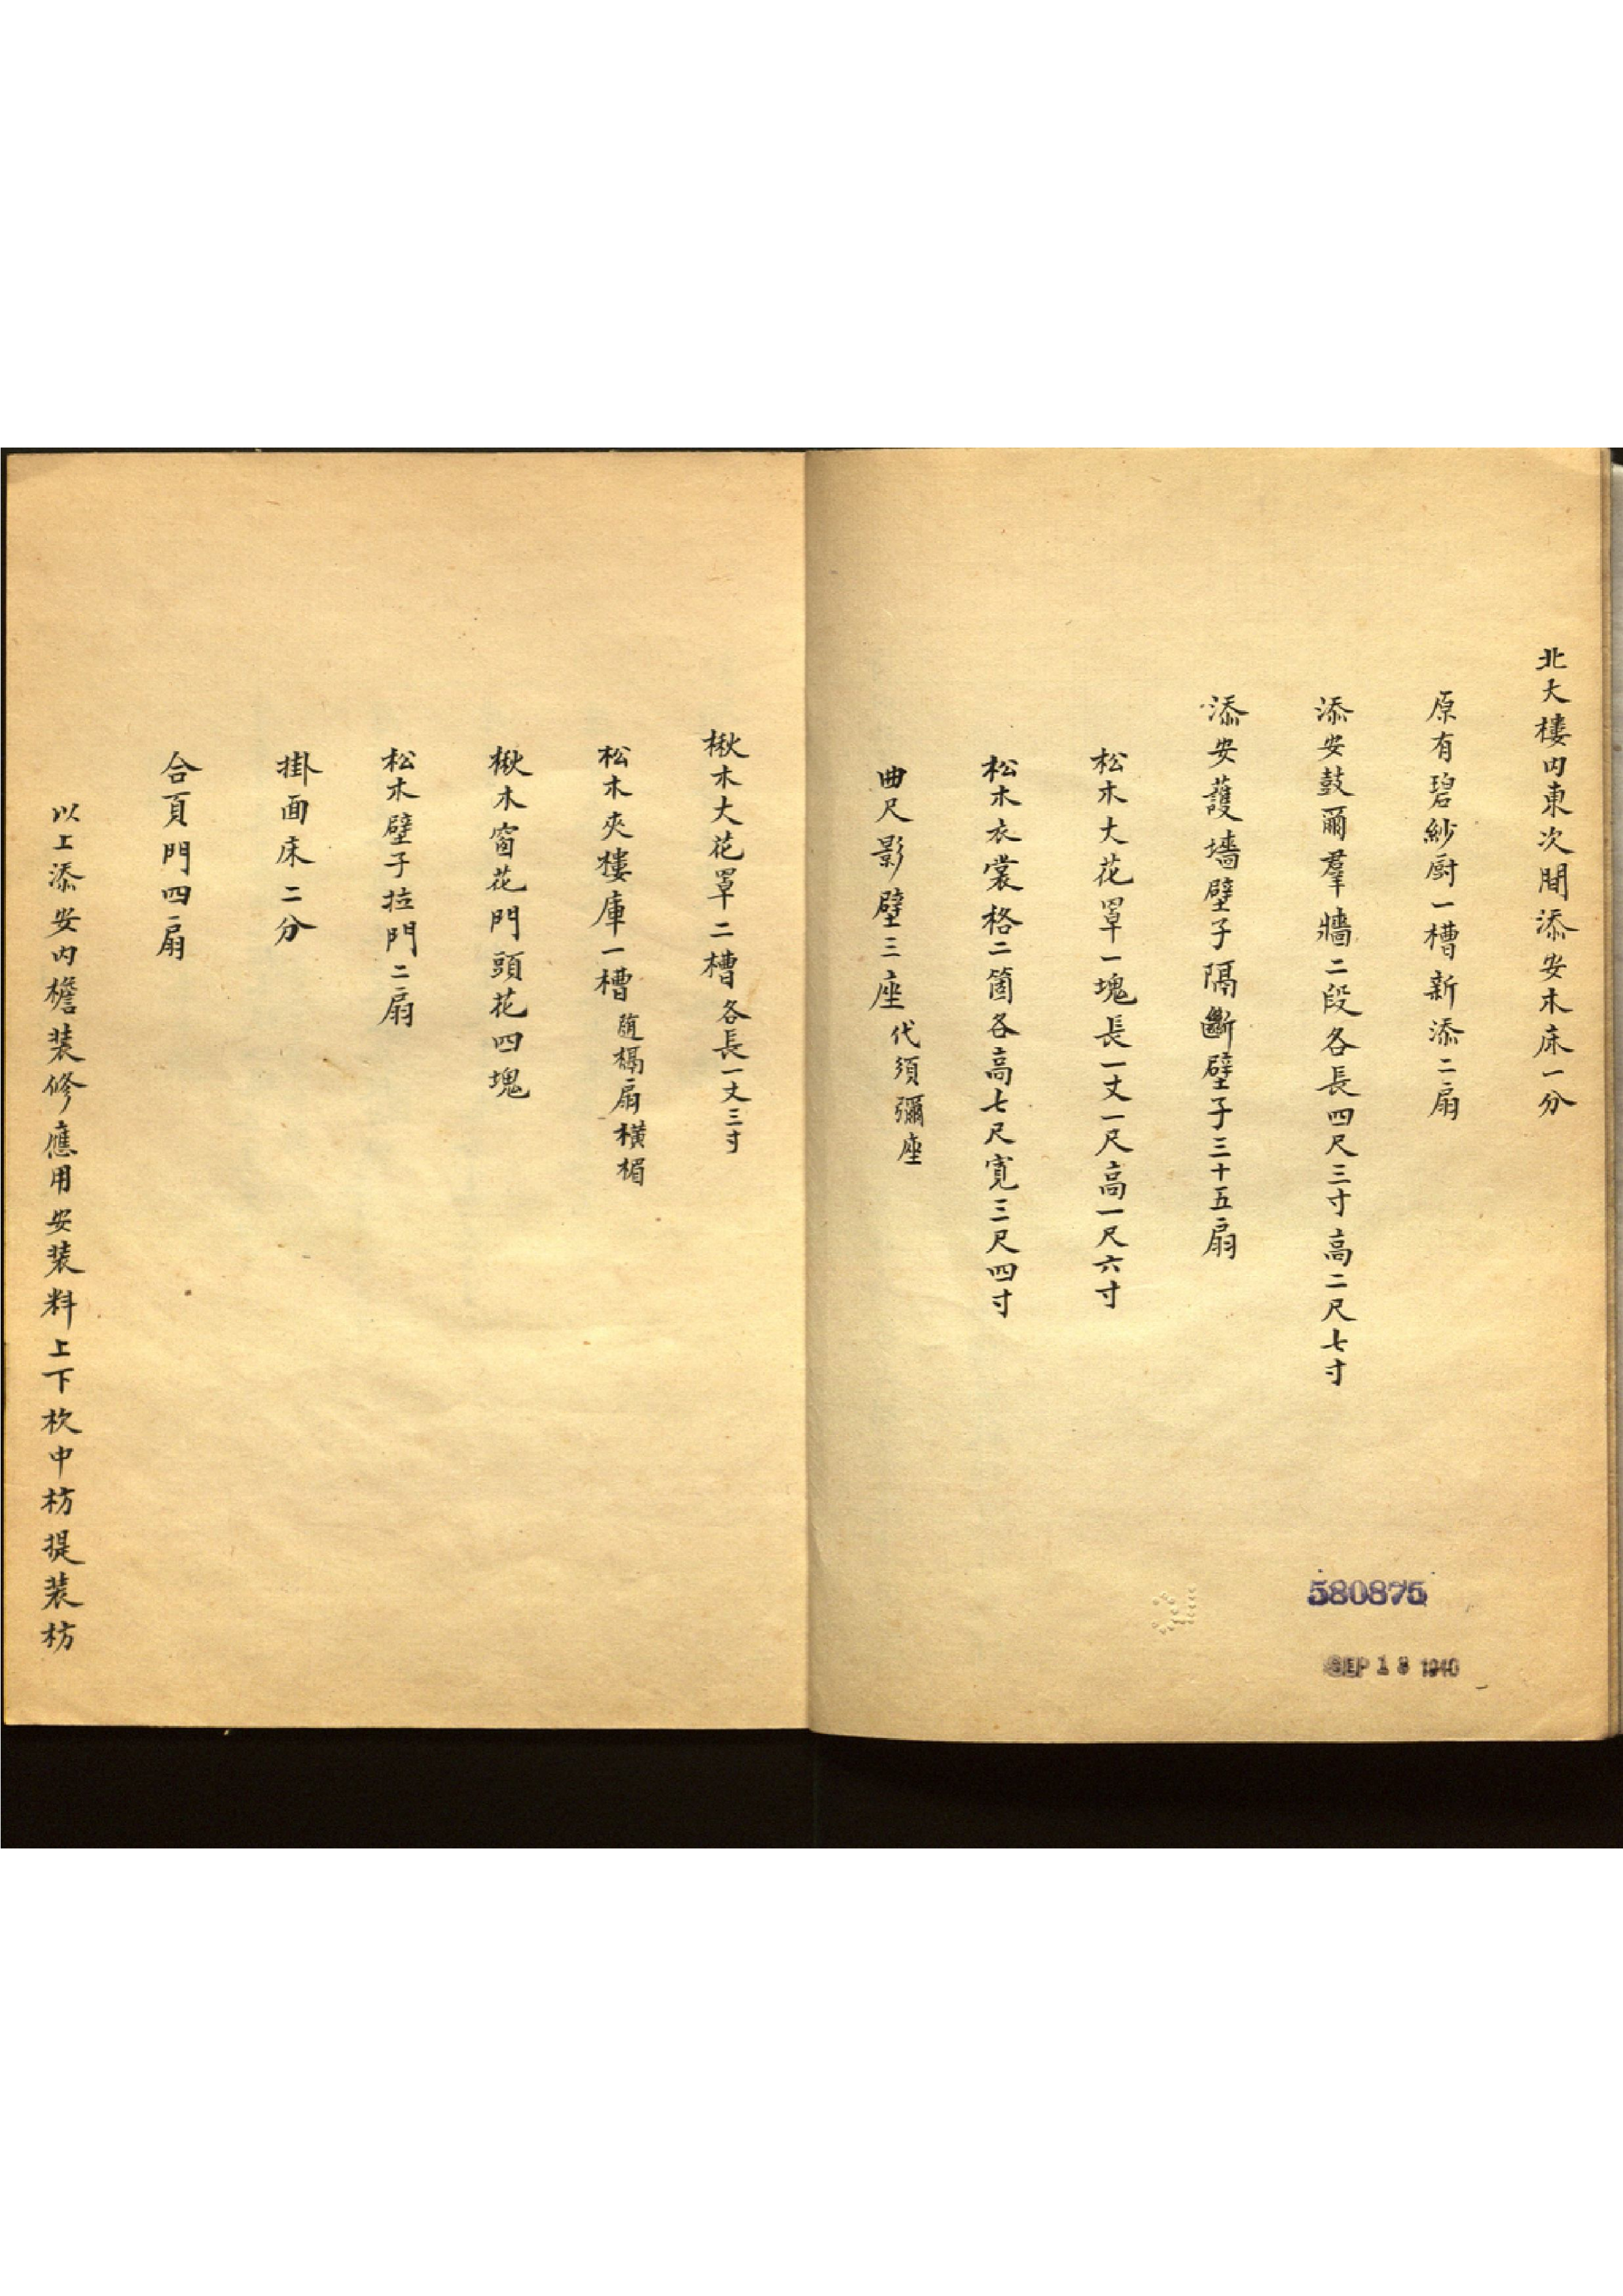 北大樓内東次間添安木床一分
原有碧紗厨一槽新添二扇
添安鼓爾羣牆二段各長四尺三寸高二尺七寸
添安護墻壁子隔斷壁子三十五扇
松木大花罩一塊長一丈一尺高一尺六寸
松木衣裳格二箇各高七尺寬三尺四寸
曲尺影壁三座代須彌座
楸木大花罩二槽各長一丈三寸
松木夾樓庫一槽随槅扇橫楣
楸木窗花門頭花四塊
松木壁子拉門二扇
掛面床二分
合頁門四扇
以上添安内檐装修應用安装料上下杴中枋提装枋
580875
SEP 13 1940